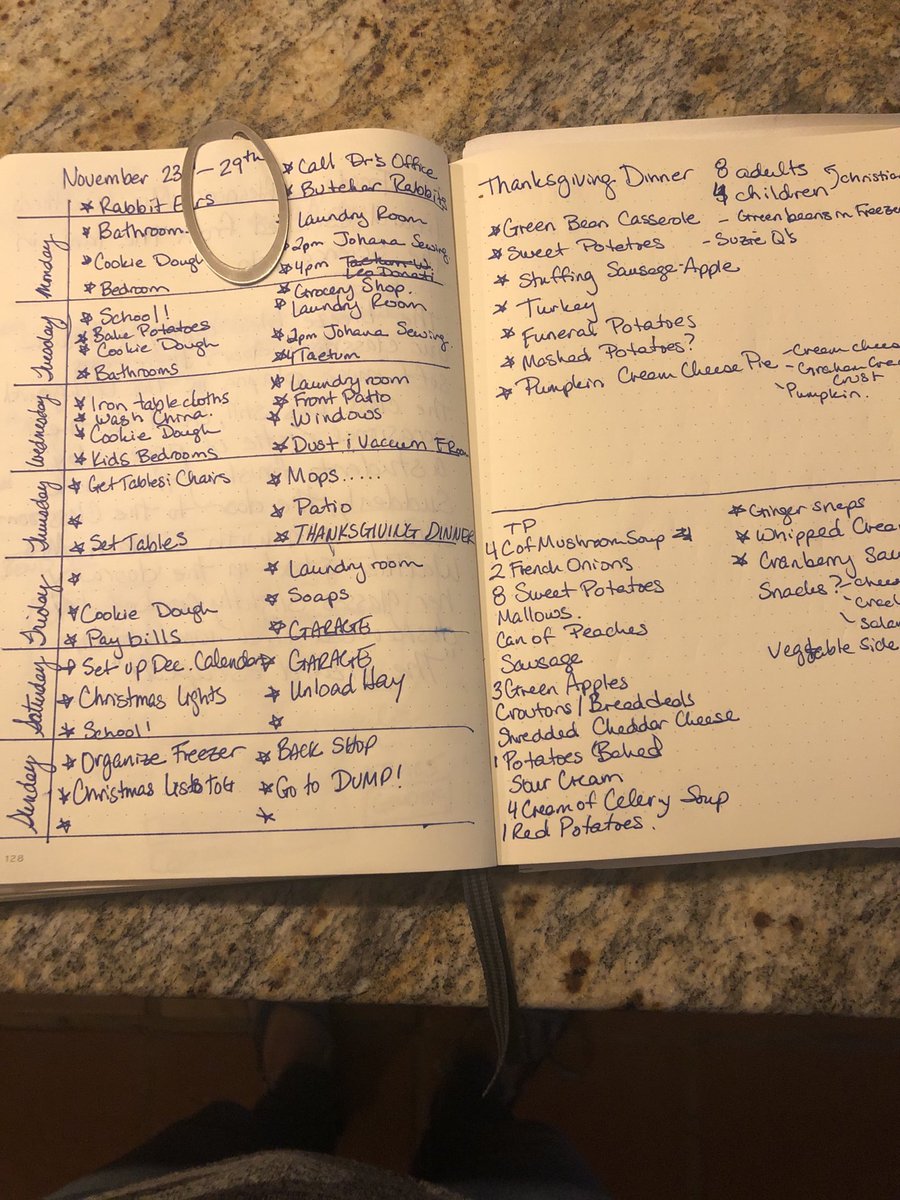 November 23 - 29th
* Call Dr's Office
* Butcher Rabbits
* Rabbit Ears
Monday
* Bathroom.
* Cookie Dough
* Bedroom
Laundry Room
* 2pm Johana Sewing
* 4pm Taetum W.
Leo Donati
* Grocery Shop.
Tuesday
* School!
* Bake Potatoes
* Cookie Dough
* Bathrooms
* Laundry Room
* 2pm Johana Sewing.
* 4 Taetum
Wednesday
* Iron tablecloths
* Wash China.
* Cookie Dough
* Kids Bedrooms
* Laundry room
* Front Patio
* Windows
* Dust i Vacuum F Room
Thursday
* Get Tables i Chairs
*
* Set Tables
* Mops.....
* Patio
* THANKSGIVING DINNER
Friday
*
* Cookie Dough
* Pay bills
* Laundry room
* Soaps
* GARAGE
Saturday
* Set up Dec. Calendar
* Christmas Lights
* School!
* GARAGE
* Unload Hay
*
Sunday
* Organize Freezer
* Christmas
*
* BACK SHOP
* Go to DUMP!
*
128
Thanksgiving Dinner 8 adults
children
* Green Bean Casserole - Green beans in Freezer
* Sweet Potatoes - Suzie Q's
* Stuffing Sausage-Apple
* Turkey
* Funeral Potatoes
* Mashed Potatoes?
* Pumpkin Cream Cheese Pie - Cream cheese
- Graham
Crust
Pumpkin.
TP
4 C of Mushroom Soup
2 French Onions
8 Sweet Potatoes
Mallows.
Can of Peaches
Sausage
3 Green Apples
Croutons /
Shredded Cheddar Cheese
1 Potatoes (Baked)
Sour Cream
4 Cream of Celery Soup
1 Red Potatoes.
* Ginger snaps
* Whipped
* Cranberry
Snacks? -
Vegetable side